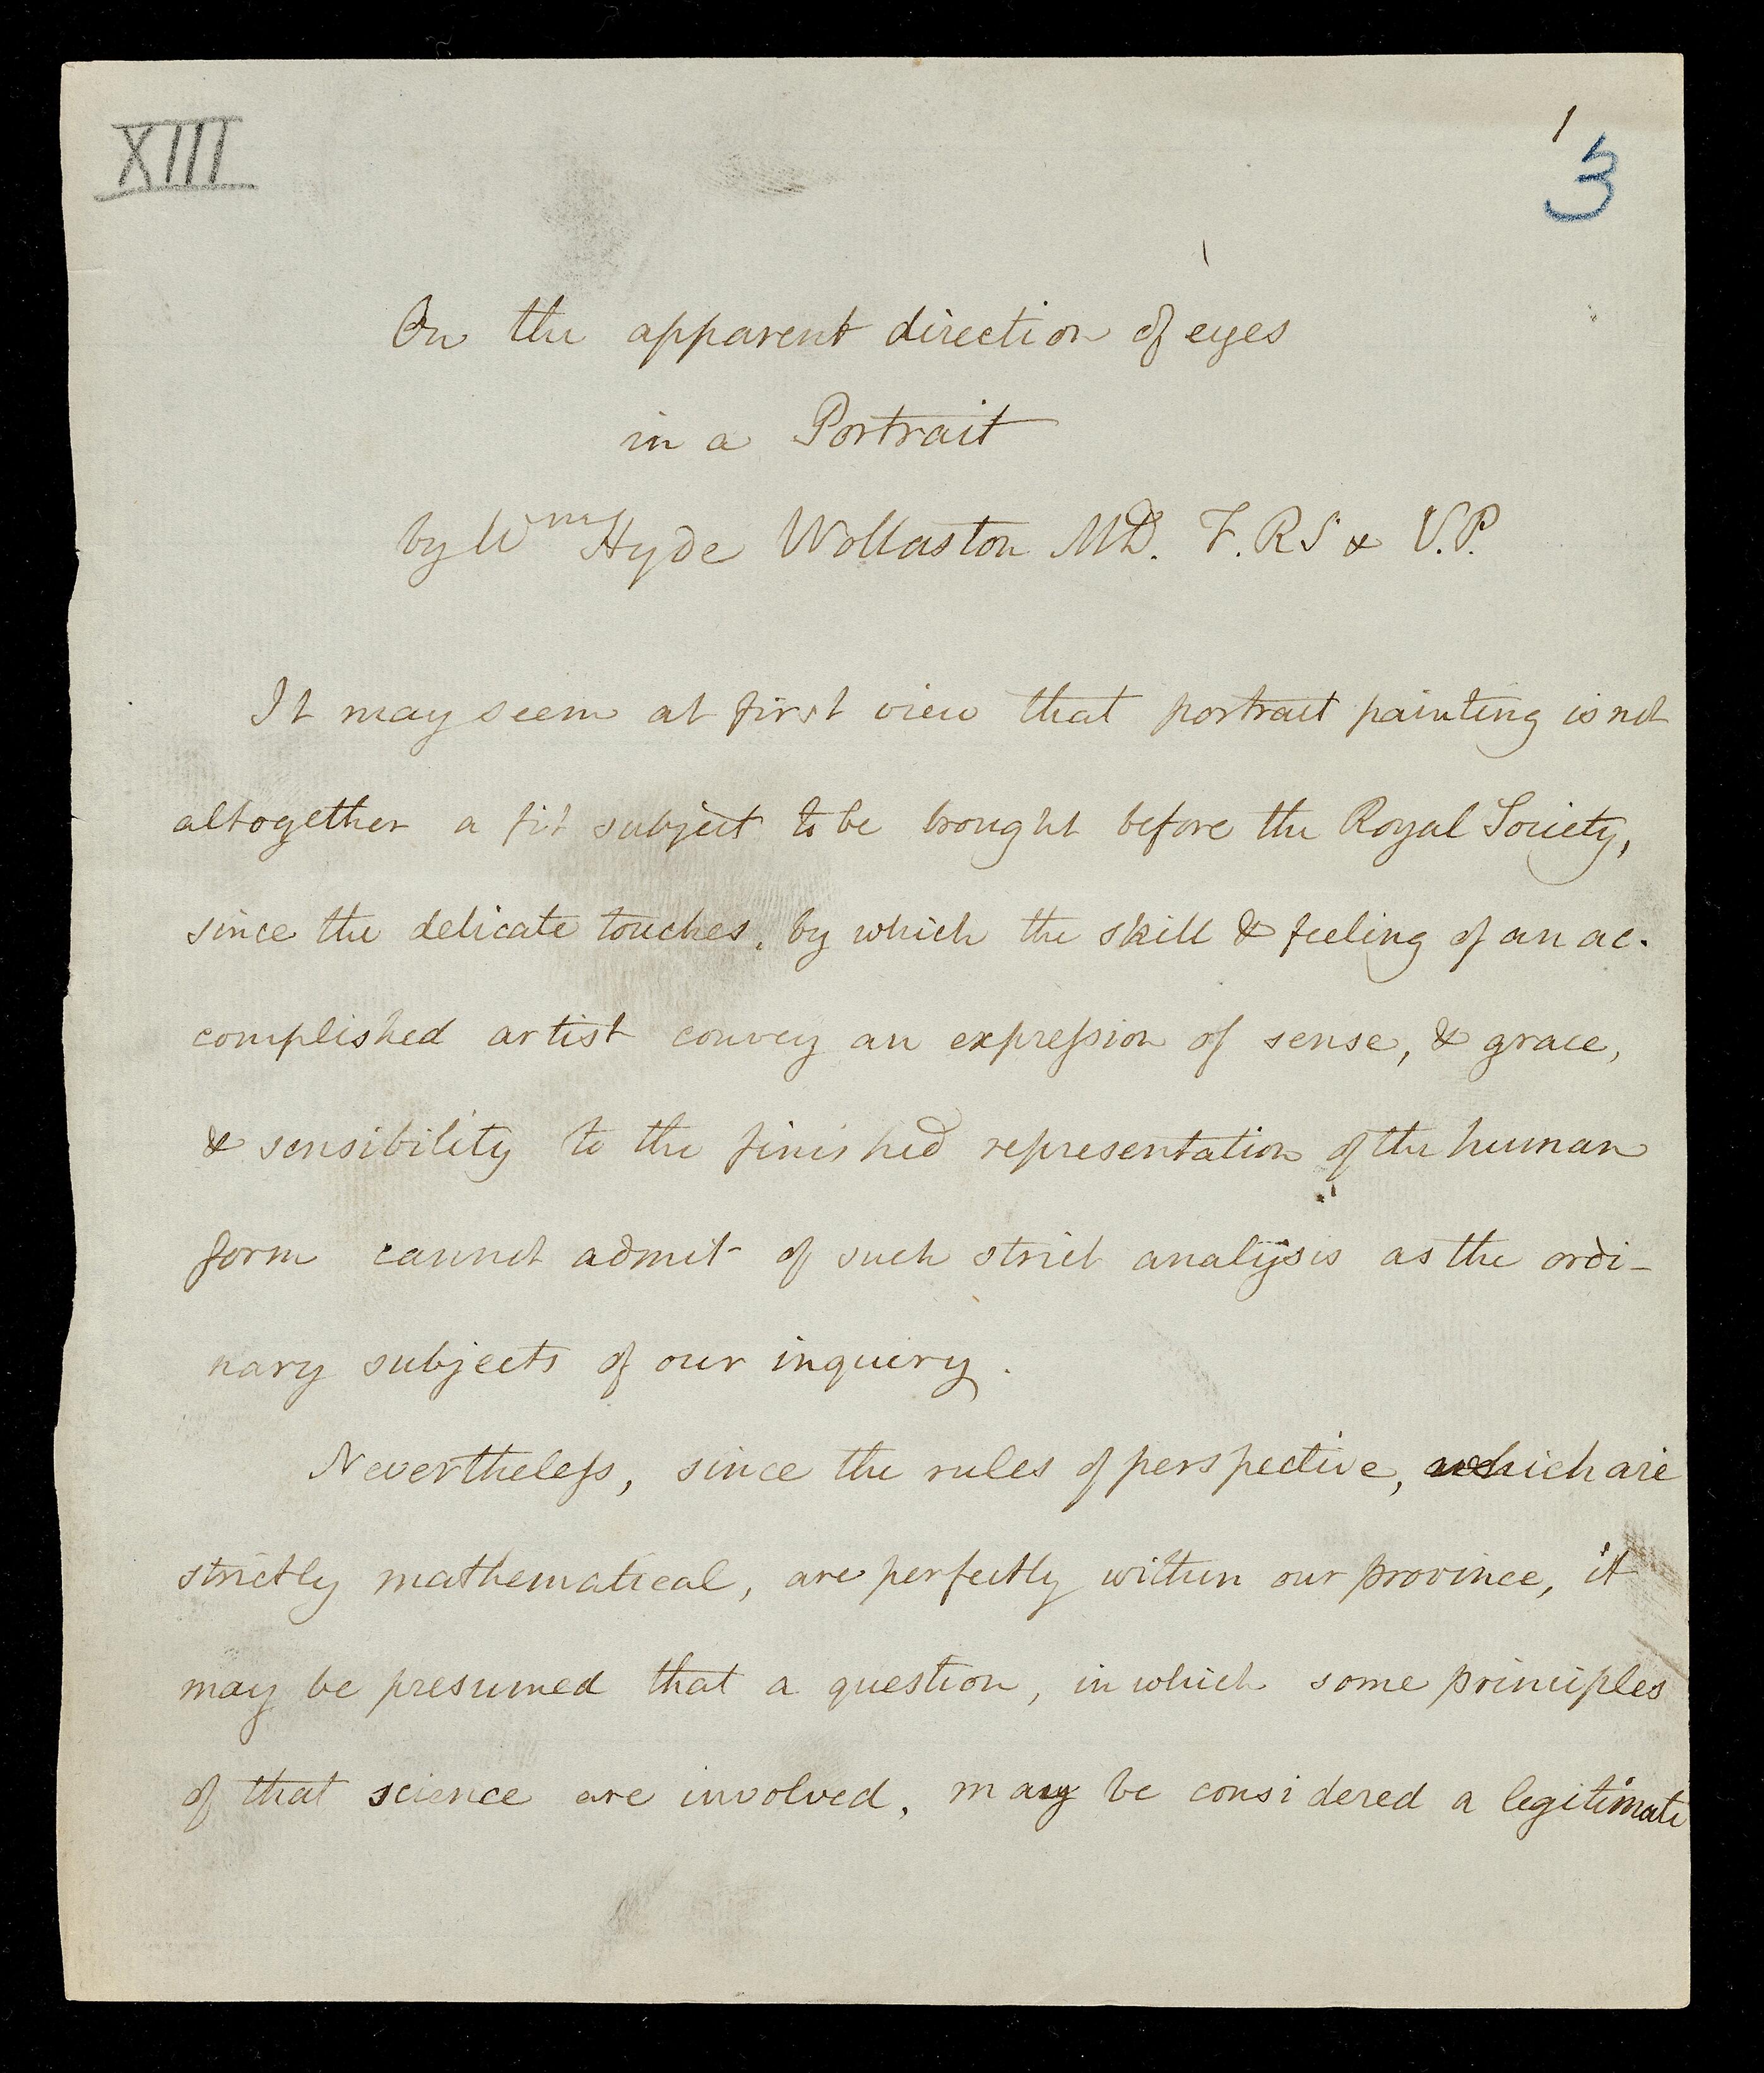 XIII
1
3
On the apparent direction of eyes
in a Portrait
by Wm Hyde Wollaston MD. F.RS & V.P.
It may seem at first view that portrait painting is not
altogether a fit subject to be brought before the Royal Society,
since the delicate touches, by which the skill & feeling of an ac-
complished artist convey an expreſsion of sense, & grace,
& sensibility to the finished representation of the human
form cannot admit of such strict analysis as the ordi-
nary subjects of our inquiry.
Nevertheleſs, since the rules of perspective, which are
strictly mathematical, are perfectly within our province, it
may be presumed that a question, in which some principles
of that science are involved, may be considered a legitimate